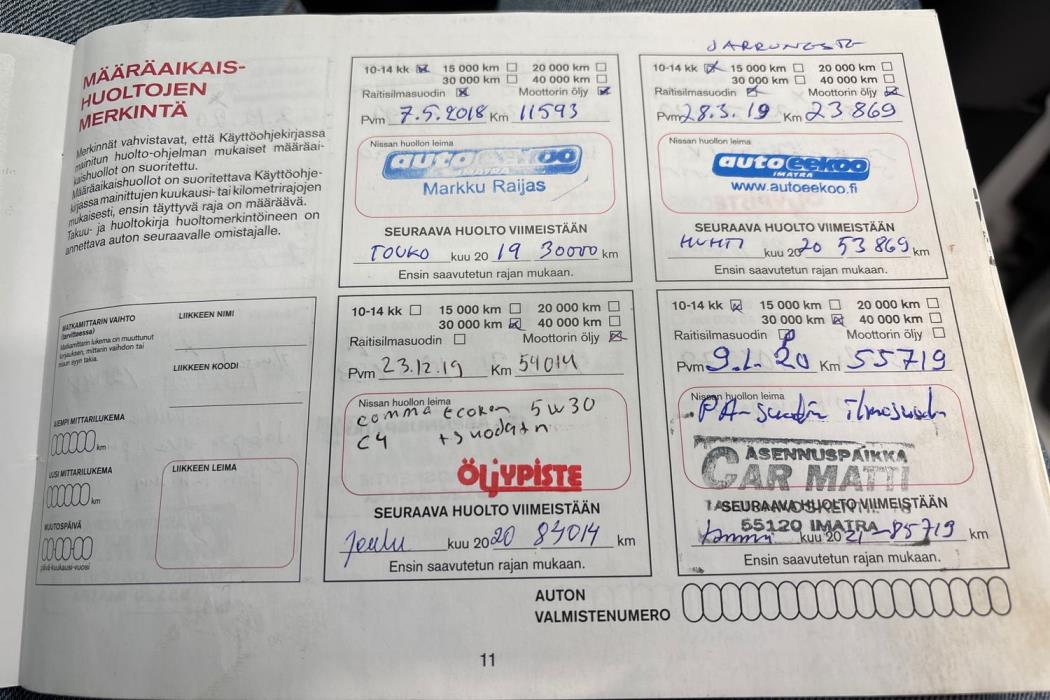 MÄÄRÄAIKAIS-
HUOLTOJEN
MERKINTÄ
Merkinnät vahvistavat, että Käyttöohjekirjassa
mainitun huolto-ohjelman mukaiset määräai-
kaishuollot on suoritettu.
Määräaikaishuollot on suoritettava Käyttöohje-
kirjassa mainittujen kuukausi- tai kilometrirajojen
mukaisesti, ensin täyttyvä raja on määräävä.
Takuu- ja huoltokirja huoltomerkintöineen on
annettava auton seuraavalle omistajalle.
MATKAMITTARIN VAIHTO
(tarvittaessa)
Matkamittarin lukema on muuttunut
korjauksen, mittarin vaihdon tai
muun syyn takia.
LIIKKEEN NIMI
LIIKKEEN KOODI
AIEMPI MITTARILUKEMA
km
UUSI MITTARILUKEMA
km
MUUTOSPÄIVÄ
päivä-kuukausi-vuosi
LIIKKEEN LEIMA
10-14 kk 15 000 km 20 000 km
30 000 km 40 000 km
Raitisilmasuodin Moottorin öljy
Pvm 7.5.2018 Km 11593
Nissan huollon leima
autoeekoo
IMATRA
Markku Raijas
SEURAAVA HUOLTO VIIMEISTÄÄN
TOUKO kuu 20 19 30000 km
Ensin saavutetun rajan mukaan.
JARRUNESTE
10-14 kk 15 000 km 20 000 km
30 000 km 40 000 km
Raitisilmasuodin Moottorin öljy
Pvm 28.3.19 Km 23869
Nissan huollon leima
autoeekoo
IMATRA
www.autoeekoo.fi
SEURAAVA HUOLTO VIIMEISTÄÄN
HUHTI kuu 20 20 53869 km
Ensin saavutetun rajan mukaan.
10-14 kk 15 000 km 20 000 km
30 000 km 40 000 km
Raitisilmasuodin Moottorin öljy
Pvm 23.12.19 Km 54014
Nissan huollon leima
comma 5w30
C4 +suodatin
ÖLJYPISTE
SEURAAVA HUOLTO VIIMEISTÄÄN
Joulu kuu 20 20 84014 km
Ensin saavutetun rajan mukaan.
10-14 kk 15 000 km 20 000 km
30 000 km 40 000 km
Raitisilmasuodin Moottorin öljy
Pvm 9.1.20 Km 55719
Nissan huollon leima
PA-suodin ilmasuodin
ASENNUSPAIKKA
CAR MATTI
SEURAAVA HUOLTO VIIMEISTÄÄN
55120 IMATRA
Tammi kuu 20 21 - 85719 km
Ensin saavutetun rajan mukaan.
AUTON
VALMISTENUMERO
11